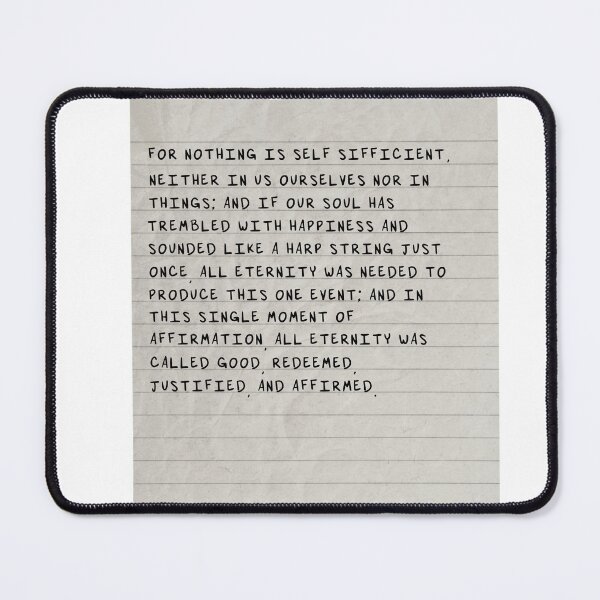 FOR NOTHING IS SELF SIFFICIENT,
NEITHER IN US OURSELVES NOR IN
THINGS; AND IF OUR SOUL HAS
TREMBLED WITH HAPPINESS AND
SOUNDED LIKE A HARP STRING JUST
ONCE, ALL ETERNITY WAS NEEDED TO
PRODUCE THIS ONE EVENT; AND IN
THIS SINGLE MOMENT OF
AFFIRMATION, ALL ETERNITY WAS
CALLED GOOD, REDEEMED,
JUSTIFIED, AND AFFIRMED.